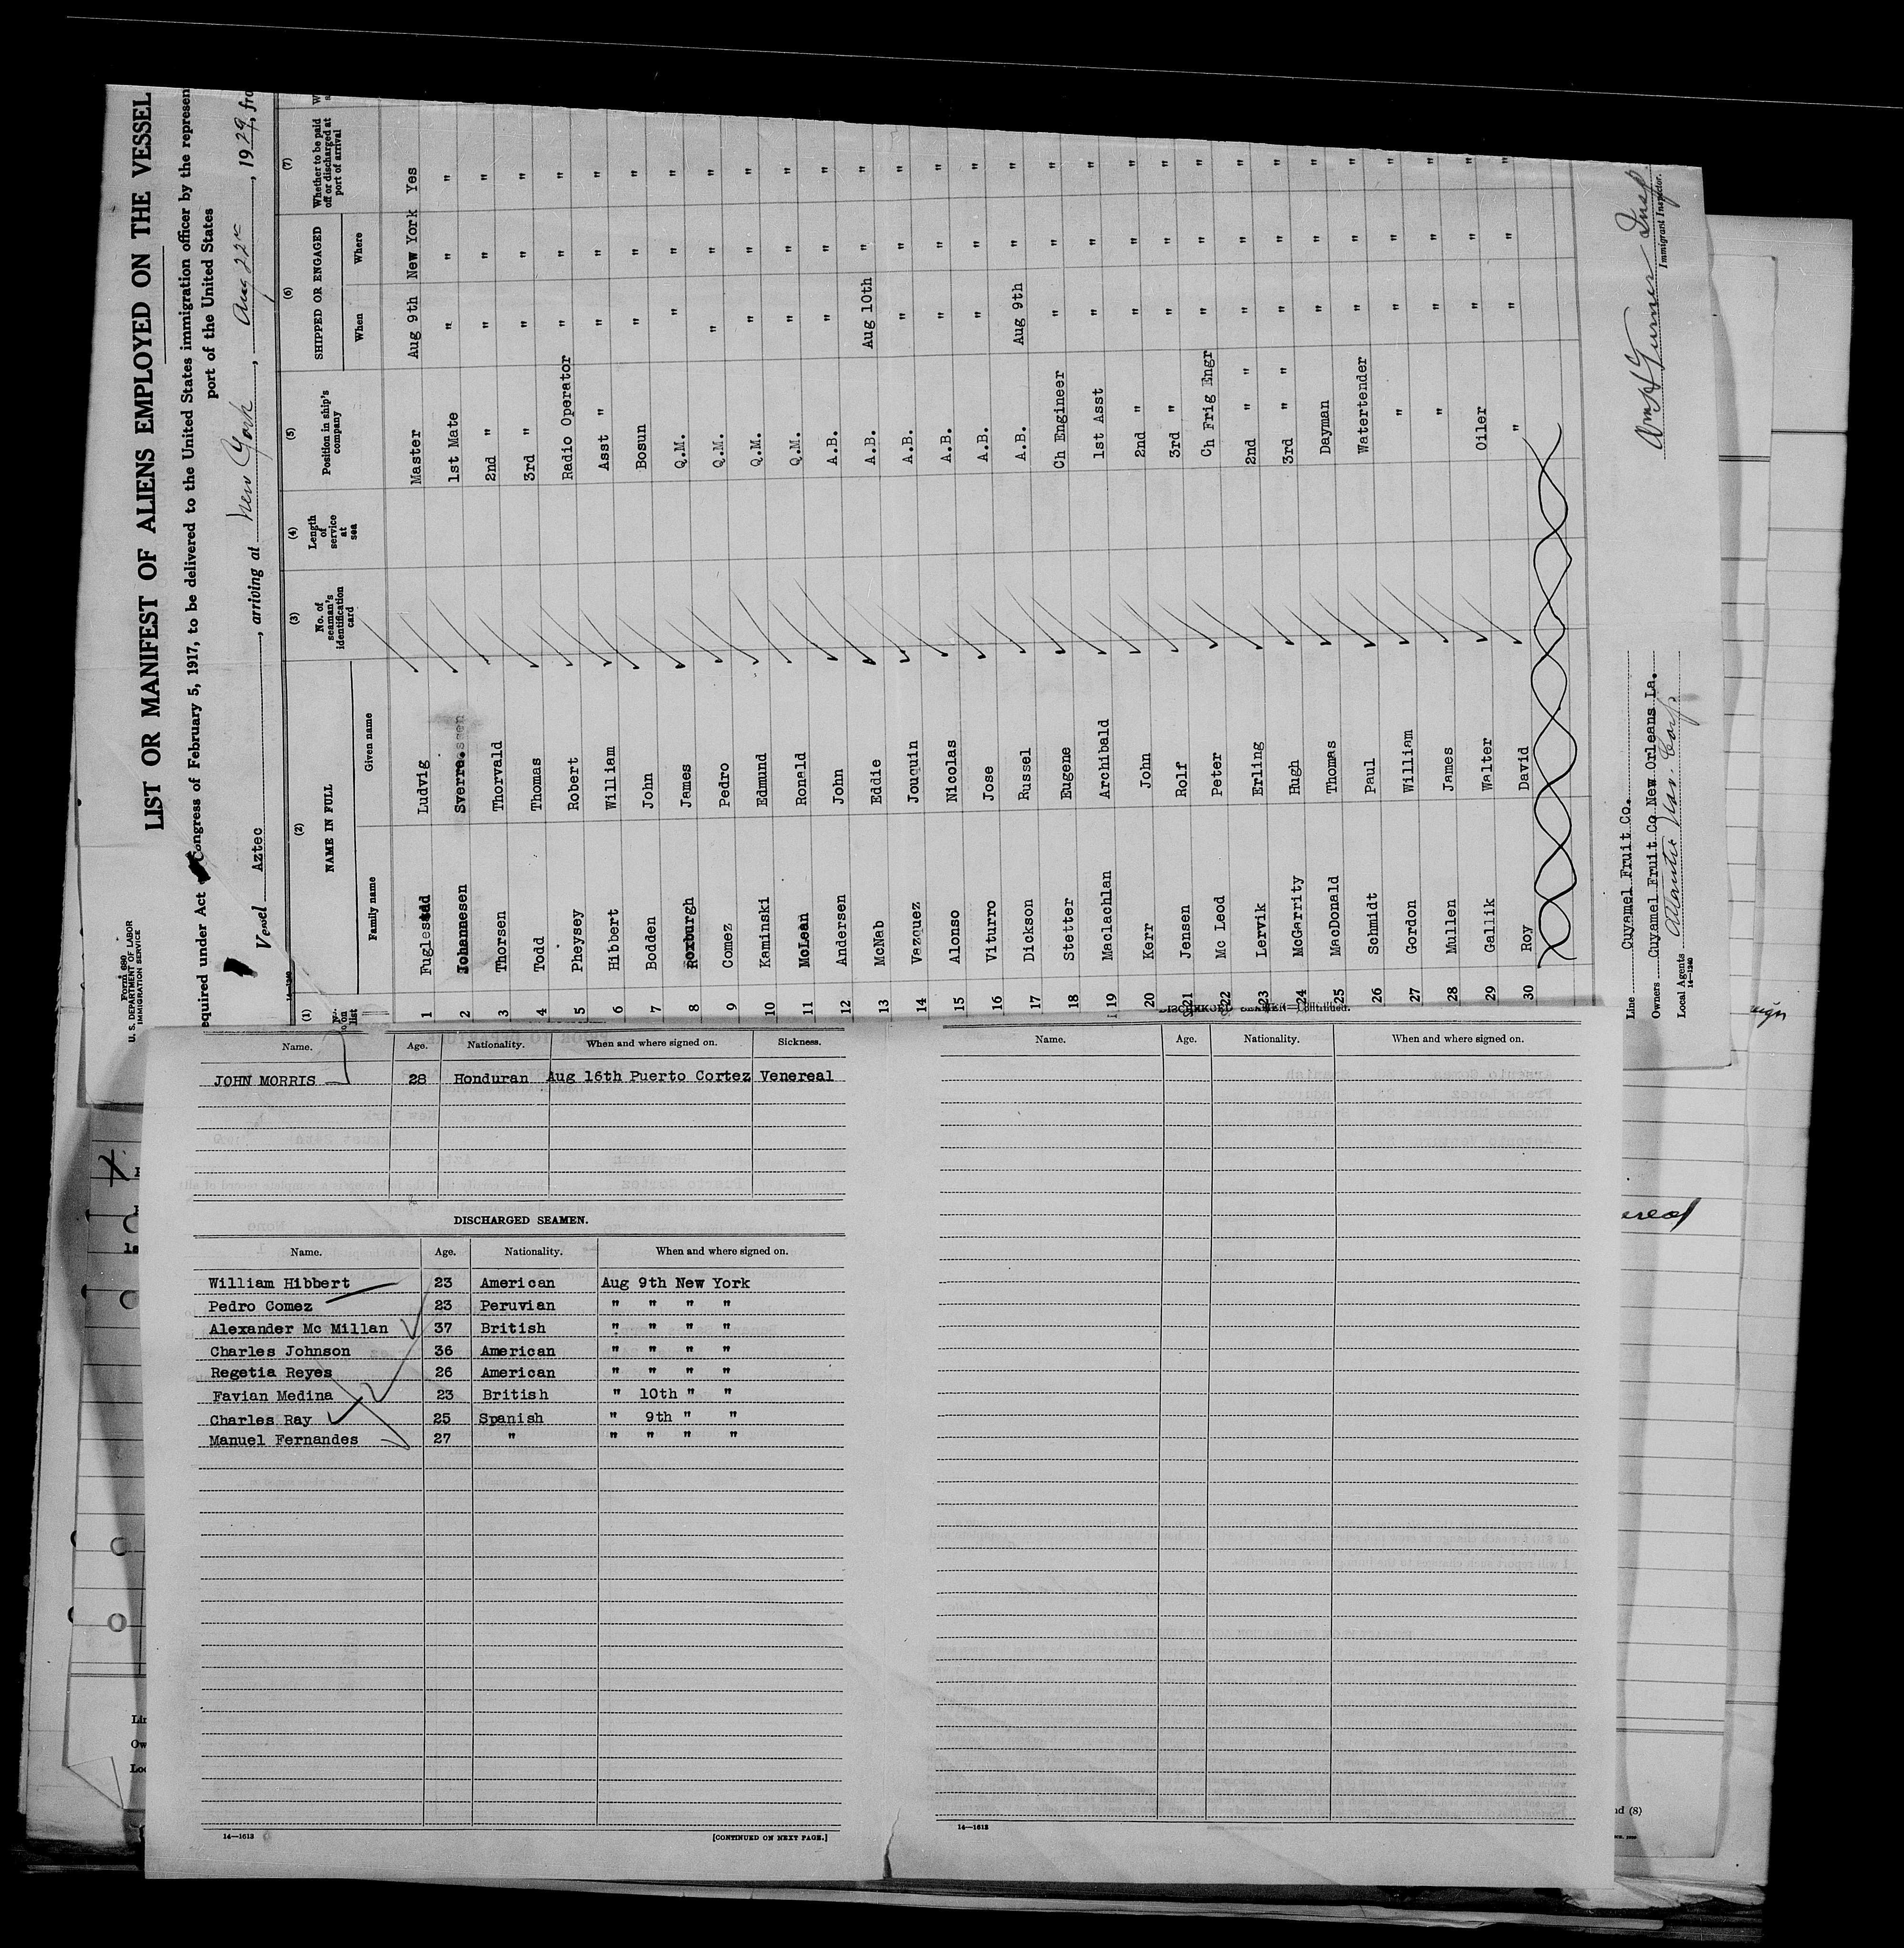 Form 680
U. S. DEPARTMENT OF LABOR
IMMIGRATION SERVICE
LIST OR MANIFEST OF ALIENS EMPLOYED ON THE VESSEL
equired under Act Congress of February 5, 1917, to be delivered to the United States immigration officer by the represen
port of the United States
Vessel Aztec, arriving at New York, Aug 22, 1929, fro
14—1240
(1) (2) (3) (4) (5) (6) (7)
No. on list NAME IN FULL No. of seaman's identification card Length of service at sea Position in ship's company SHIPPED OR ENGAGED Whether to be paid off or discharged at port of arrival
Family name Given name When Where
1 Fuglestad Ludvig Master Aug 9th New York Yes
2 Johannesen Sverre. 1st Mate " " "
3 Thorsen Thorvald 2nd " " " "
4 Todd Thomas 3rd " " " "
5 Pheysey Robert Radio Operator " " "
6 Hibbert William Asst " " " "
7 Bodden John Bosun " " "
8 Roxburgh James Q.M. " " "
9 Comez Pedro Q.M. " " "
10 Kaminski Edmund Q.M. " " "
11 McLean Ronald Q.M. " " "
12 Andersen John A.B. " " "
13 McNab Eddie A.B. Aug 10th " "
14 Vazquez Jouquin A.B. " " "
15 Alonso Nicolas A.B. " " "
16 Viturro Jose A.B. " " "
17 Dickson Russel A.B. Aug 9th " "
18 Stetter Eugene Ch Engineer " " "
19 Maclachlan Archibald 1st Asst " " "
20 Kerr John 2nd " " " "
21 Jensen Rolf 3rd " " " "
22 Mc Leod Peter Ch Frig Engr " " "
23 Lervik Erling 2nd " " " " "
24 McGarrity Hugh 3rd " " " " "
25 MacDonald Thomas Dayman " " "
26 Schmidt Paul Watertender " " "
27 Gordon William " " " "
28 Mullen James " " " "
29 Gallik Walter Oiler " " "
30 Roy David " " " "
Line Cuyamel Fruit Co.
Owners Cuyamel Fruit Co New Orleans La.
Local Agents Atlantic Nav. Corp
14—1240
Immigrant Inspector.
Name. Age. Nationality. When and where signed on. Sickness.
JOHN MORRIS 28 Honduran Aug 16th Puerto Cortez Venereal
DISCHARGED SEAMEN.
Name. Age. Nationality. When and where signed on.
William Hibbert 23 American Aug 9th New York
Pedro Comez 23 Peruvian " " " "
Alexander Mc Millan 37 British " " " "
Charles Johnson 36 American " " " "
Regetia Reyes 26 American " " " "
Favian Medina 23 British " 10th " "
Charles Ray 25 Spanish " 9th " "
Manuel Fernandes 27 " " " " "
14—1613
[CONTINUED ON NEXT PAGE.]
DISCHARGED SEAMEN—Continued.
Name. Age. Nationality. When and where signed on.
14—1613
nd (8)